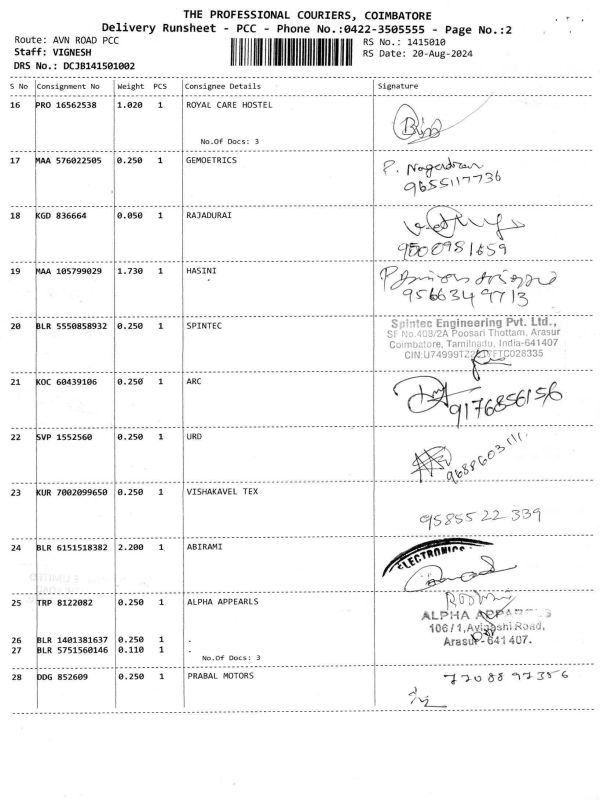 THE PROFESSIONAL COURIERS, COIMBATORE
Delivery Runsheet - PCC - Phone No.:0422-3505555 - Page No.:2
Route: AVN ROAD PCC RS No.: 1415010
Staff: VIGNESH RS Date: 20-Aug-2024
DRS No.: DCJB141501002
S No Consignment No Weight PCS Consignee Details Signature
16 PRO 16562538 1.020 1 ROYAL CARE HOSTEL
No.Of Docs: 3
17 MAA 576022505 0.250 1 GEMOETRICS P. Nagendran
9655117736
18 KGD 836664 0.050 1 RAJADURAI
9500981659
19 MAA 105799029 1.730 1 HASINI
9566349713
20 BLR 5550858932 0.250 1 SPINTEC Spintec Engineering Pvt. Ltd.,
SF No.408/2A Poosari Thottam, Arasur
Coimbatore, Tamilnadu, India-641407
21 KOC 60439106 0.250 1 ARC
9176856156
22 SVP 1552560 0.250 1 URD
9688603111
23 KUR 7002099650 0.250 1 VISHAKAVEL TEX
9585522339
24 BLR 6151518382 2.200 1 ABIRAMI
ELECTRONICS
25 TRP 8122082 0.250 1 ALPHA APPEARLS
ALPHA APPARELS
106/1, Avinashi Road,
Arasur-641 407.
26 BLR 1401381637 0.250 1 .
27 BLR 5751560146 0.110 1 .
No.Of Docs: 3
28 DDG 852609 0.250 1 PRABAL MOTORS 7708897356